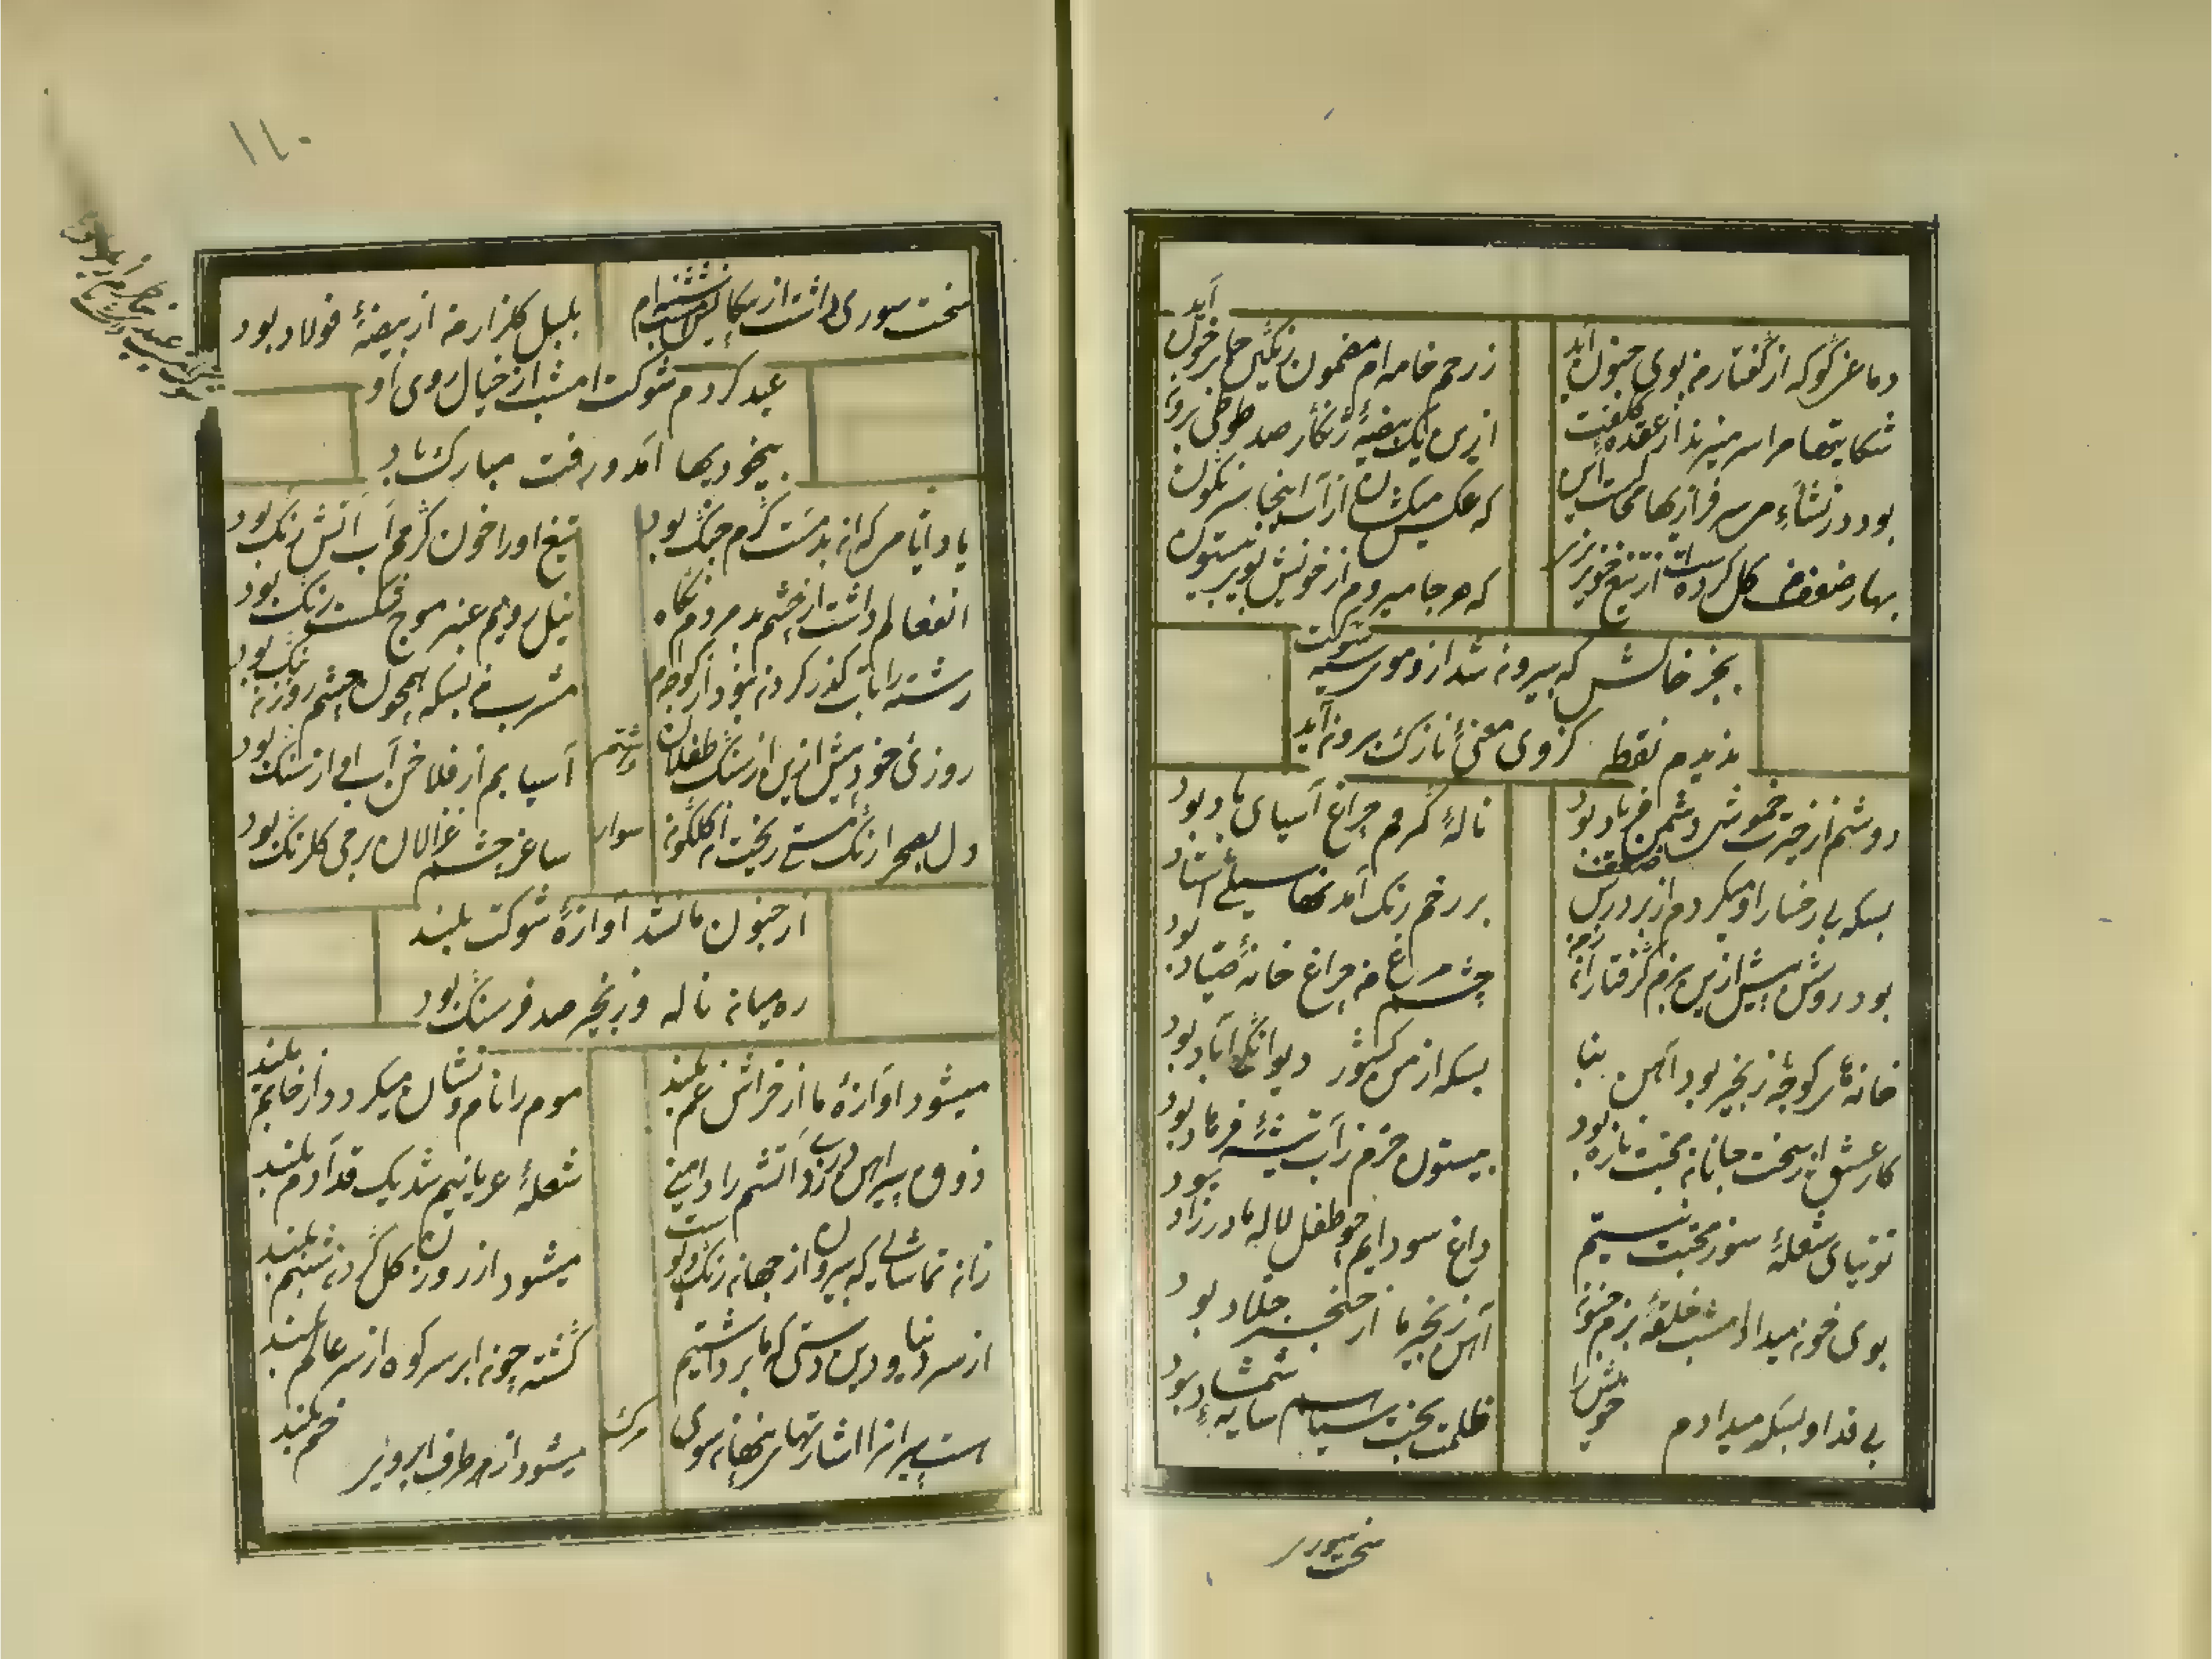 دماغی کو که از گفتار من بوی جنون آید
ز زخم خامه ام مضمون رنگین جای خون آید
شکایتها مرا سر میزند از عقده کلفت
ازین یک بیضهٔ زنگار صد طوطی برون
بود در نشاء می سرفرازیهای
که عکس میکشان از آب اینجا سرنگون
بهار ضعف گل کرده است از تیغ خونریزش
که هر جا میروم از خویش بوی بیستون
بجز خالش که بیرون شد از دور موی سیه شوکت
ندیدم نقطه کزوی معنیٔ نازک برون آید
دوشم از حیرت خموشی دشمن فریاد بود
نالهٔ گرمم چراغ آسیای باد بود
بسکه بی رخسار او میکردم از بر درس ضعف
بر رخم رنگ آمدنها سیلی استاد بود
بود روشن پیش ازین بزم گرفتاران
چشم مرغ من چراغ خانهٔ صیاد بود
خانهٔ هر کوچهٔ زنجیر بود آهن بنا
بسکه از من کشور دیوانگی آباد بود
کار عشق از سخت جانان محبت تازه بود
بیستون خرم ز آب تیشهٔ فرهاد بود
توتیای شعلهٔ سوز محبت نیستیم
داغ سودایم چو طفل لاله مادرزاد بود
بوی خون میداد امشب حلقهٔ بزم جنون
آهن زنجیر ما از خنجر جلاد بود
بی قد او بسکه میدادم خویش را
ظلمت بخت سیاهم سایهٔ شمشاد بود
سخت سوری
١١٠
سخت سوری داشت از پیکان
بلبل گلزار من از بیضهٔ فولاد بود
عید کردم شوکت امشب از خیال روی او
بیخودیها آمد و رفت مبارک باد بود
یاد ایامی که آن بدمست گرم جنگ بود
تیغ او را خون گرمم آب آتش رنگ بود
انفعالم داشت از چشم بد مردم نگاه
نیل رویم عنبر موج شکست رنگ بود
رشته را تاب گذر کردن نبود از گوهرم
مشرب من بسکه همچون چشم روزن تنگ بود
روزی خود پیش ازین از سنگ طفلان داشتم
آسیایم از فلاخن آب او از سنگ بود
دل بصحرا رنگ مستی ریخت از گلگون سوار
ساغر چشم غزالان پر می گلرنگ بود
از جنون ما نشد آوازهٔ شوکت بلند
ره میان ناله و زنجیر صد فرسنگ بود
میشود آوازهٔ ما از خراش غم بلند
موم را نام و نشان میگردد از خاتم بلند
ذوق پیراهن دری زد آتشم را دامنی
شعلهٔ عریانیم شد یک قد آدم بلند
زان تماشایی که بیرون از جهان رنگ و بوست
میشود از روزن گل گردن شبنم بلند
از سر دنیا و دین دستی که ما برداشتیم
گشته چون ابر سر کوه از سر عالم بلند
هست پیران را اشارتهای پنهان سوی مرگ
میشود از هر طرف ابرو بر خم بلند